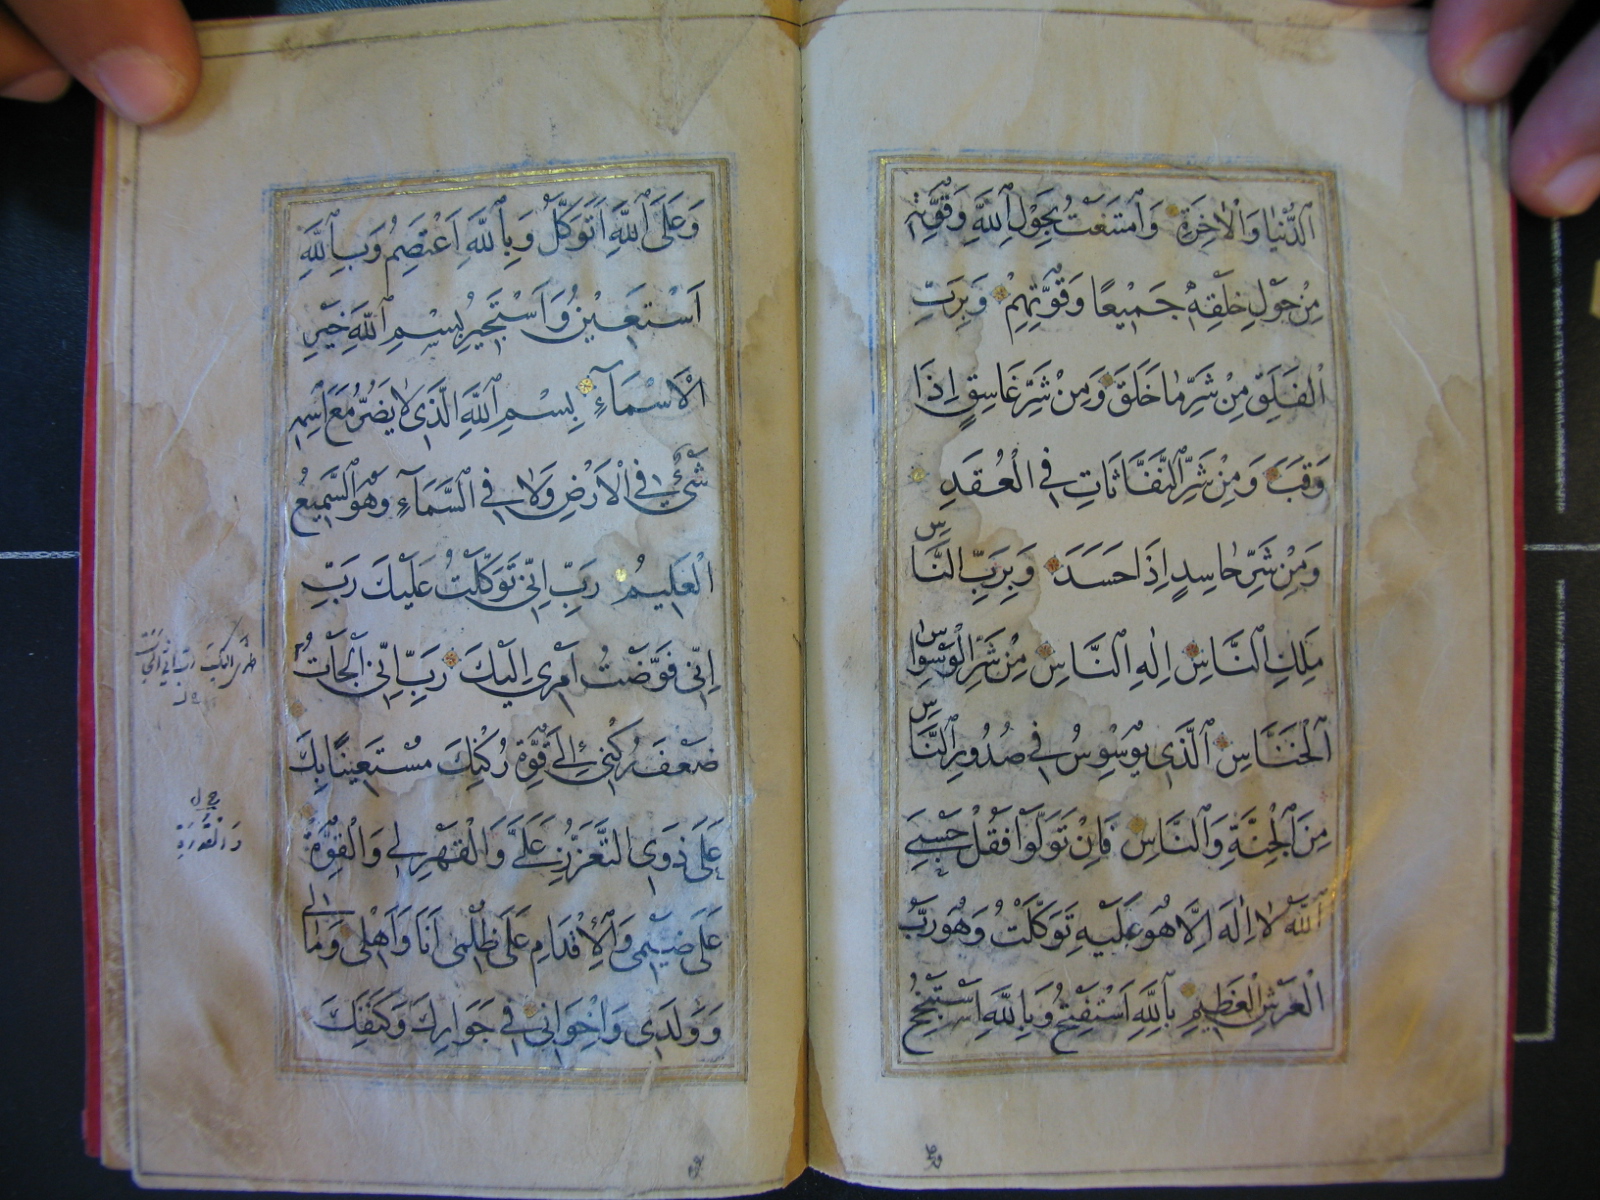 اَلدُّنْيَا وَالْاٰخِرَةِ وَامْتَنَعْتُ بِحَوْلِ اللّٰهِ وَقُوَّتِهِ
مِنْ حَوْلِ خَلْقِهٖ جَمِيْعًا وَقُوَّتِهِمْ وَبِرَبِّ
الْفَلَقِ مِنْ شَرِّ مٰا خَلَقَ وَمِنْ شَرِّ غَاسِقٍ اِذَا
وَقَبَ وَمِنْ شَرِّ النَّفَّاثَاتِ فِى الْعُقَدِ
وَمِنْ شَرِّ حٰاسِدٍ اِذَا حَسَدَ وَبِرَبِّ النَّاسِ
مَلِكِ النَّاسِ اِلٰهِ النَّاسِ مِنْ شَرِّ الْوَسْوَاسِ
الْخَنَّاسِ الَّذِى يُوَسْوِسُ فِى صُدُورِ النَّاسِ
مِنَ الْجِنَّةِ وَالنَّاسِ فَاِنْ تَوَلَّوْا فَقُلْ حَسْبِىَ
اللّٰهُ لٰا اِلٰهَ اِلَّا هُوَ عَلَيْهِ تَوَكَّلْتُ وَهُوَ رَبُّ
الْعَرْشِ الْعَظِيمِ بِاللّٰهِ اَسْتَفْتِحُ وَبِاللّٰهِ اَسْتَنْجِحُ
وَعَلَى اللّٰهِ اَتَوَكَّلُ وَبِاللّٰهِ اَعْتَصِمُ وَبِاللّٰهِ
اَسْتَعِيْنُ وَاَسْتَجِيْرُ بِسْمِ اللّٰهِ خَيْرِ
الْاَسْمَآءِ بِسْمِ اللّٰهِ الَّذِى لٰا يَضُرُّ مَعَ اسْمِهِ
شَىْءٌ فِى الْاَرْضِ وَلٰا فِى السَّمَآءِ وَهُوَ السَّمِيعُ
الْعَلِيمُ رَبِّ اِنِّى تَوَكَّلْتُ عَلَيْكَ رَبِّ
اِنِّى فَوَّضْتُ اَمْرِى اِلَيْكَ رَبِّ اِنِّى اَلْجَاْتُ
ضَعْفَ رُكْنِى اِلٰى قُوَّةِ رُكْنِكَ مُسْتَعِيْنًا بِكَ
عَلٰى ذَوِى التَّعَزُّزِ عَلَىَّ وَالْقَهْرِ لِى وَالْقُوَّةِ
عَلٰى ضَيْمِى وَالْاِقْدَامِ عَلٰى ظُلْمِى اَنَا وَاَهْلِى وَمٰالِى
وَوَلَدِى وَاِخْوَانِى فِى جَوَارِكَ وَكَنَفِكَ